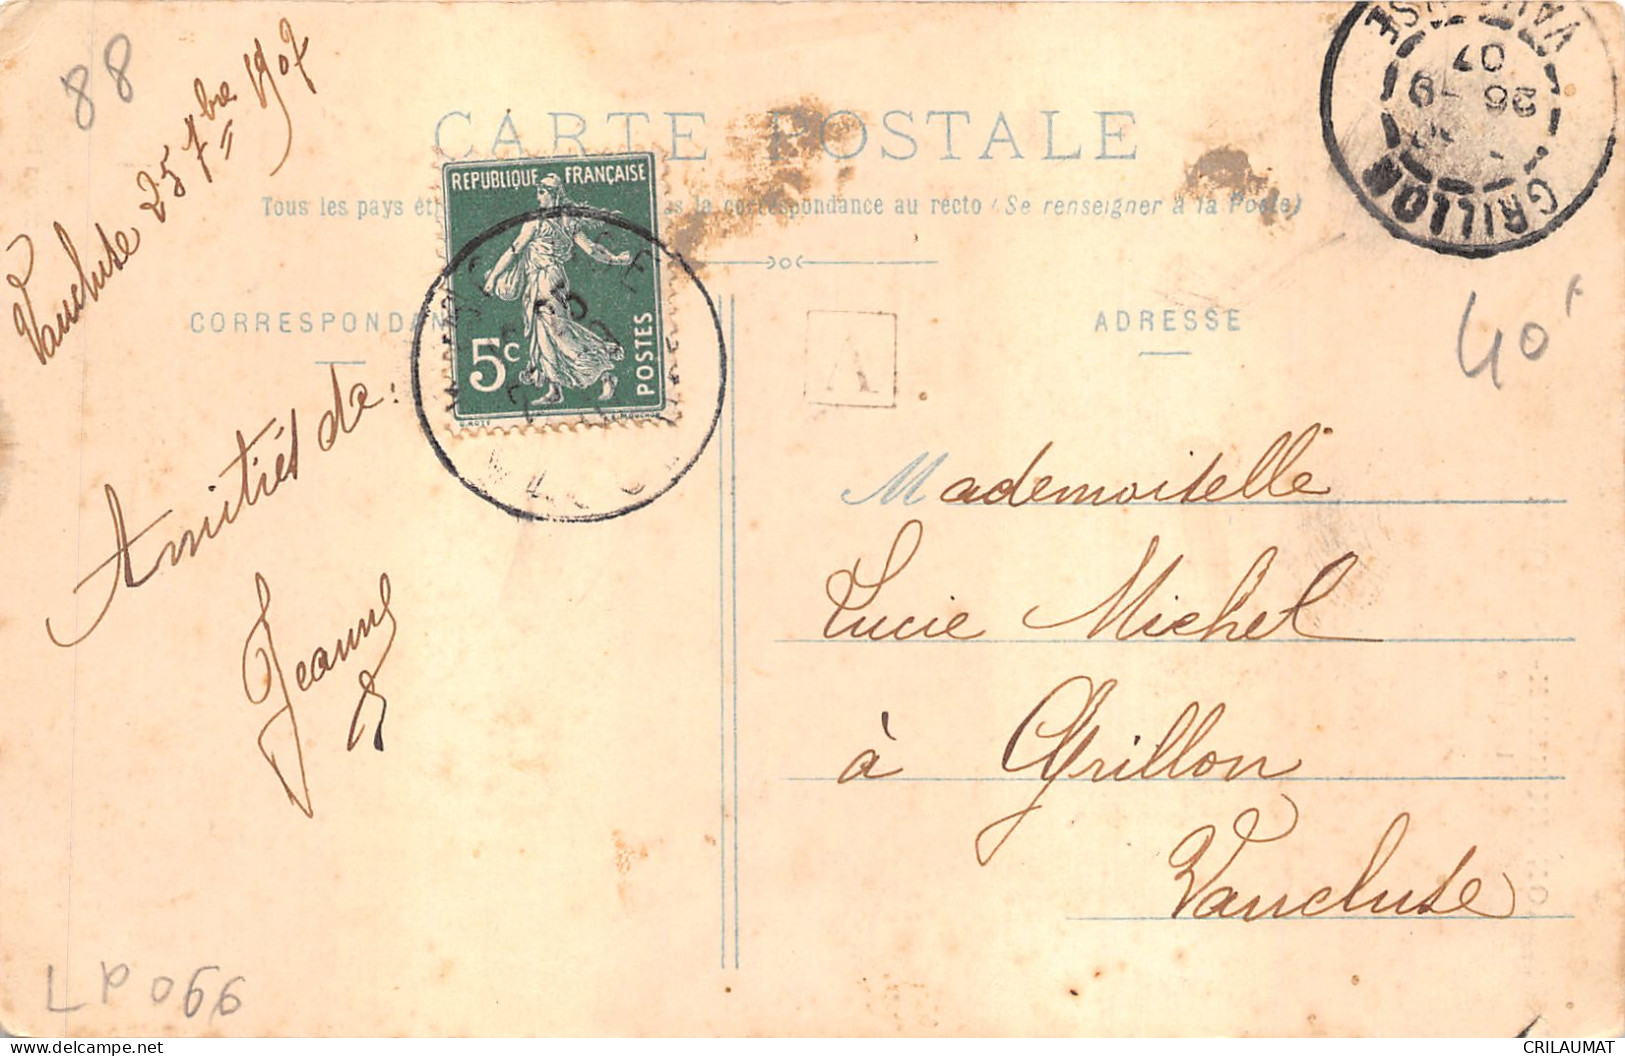 88
Vaucluse 25 7bre 1907
CARTE POSTALE
Tous les pays la correspondance au recto (Se renseigner à la Poste)
REPUBLIQUE FRANÇAISE
5c
POSTES
CORRESPONDAN
ADRESSE
A
GRILLON
26 -9
07
VAUCLUSE
40F
Amitiés de :
Jeanne
Mademoiselle
Lucie Michel
à Grillon
Vaucluse
LP 066
delcampe.net
CRILAUMAT